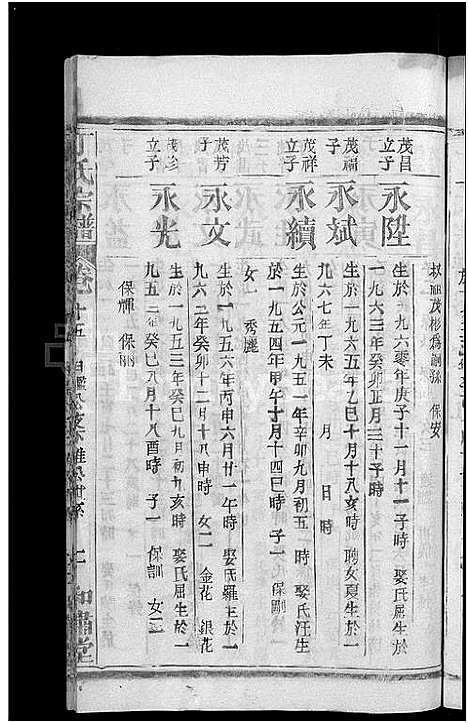 叔祖茂彬為嗣孫 保安
茂昌
立子
永陞
生於一九六零年庚子十一月十一子時 娶氏屈生於
一九六三年癸卯正月三十子時
茂禧
子
永斌
生於一九六五年乙巳十月十八亥時 聘女夏生於一
九六七年丁未 月 日 時
茂祥
立子
永續
生於公元一九五一年辛卯九月初五 時 娶氏汪生
於一九五四年甲午十月十四巳時 子一 保剛
女一 秀麗
茂芳
子
永文
生於一九五六年丙申六月廿一午時 娶氏羅生於一
九六三年癸卯十二月十八申時 女二 金花 銀花
茂珍
立子
永光
生於一九五三年癸巳九月初九亥時 娶氏屈生於一
九五三年癸巳八月十八酉時 子一 保訓 女二
保輝 保麗
丁氏宗譜
卷 十五